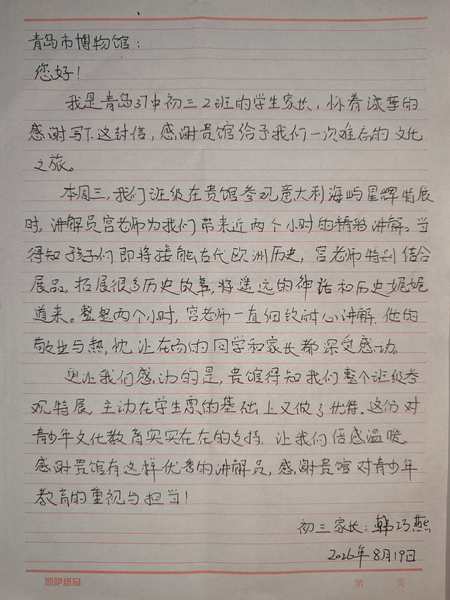 青岛市博物馆:
您好!
我是青岛37中初三2班的学生家长,怀着深厚的
感谢写下这封信,感谢贵馆给予我们一次难忘的文化
之旅。
本周三,我们班级在贵馆参观意大利海屿星辉特展
时,讲解员宫老师为我们带来近两个小时的精彩讲解。当
得知孩子们即将接触古代欧洲历史,宫老师特别结合
展品,拓展很多历史故事,将遥远的神话和历史娓娓
道来。整整两个小时,宫老师一直细致耐心讲解,他的
敬业与热忱,让在场的同学和家长都深受感动。
更让我们感动的是,贵馆得知我们整个班级参
观特展,主动在学生票的基础上又做了优惠。这份对
青少年文化教育实实在在的支持,让我们倍感温暖。
感谢贵馆有这样优秀的讲解员,感谢贵馆对青少年
教育的重视与担当!
初三家长:韩巧燕
2026年8月19日
第 页